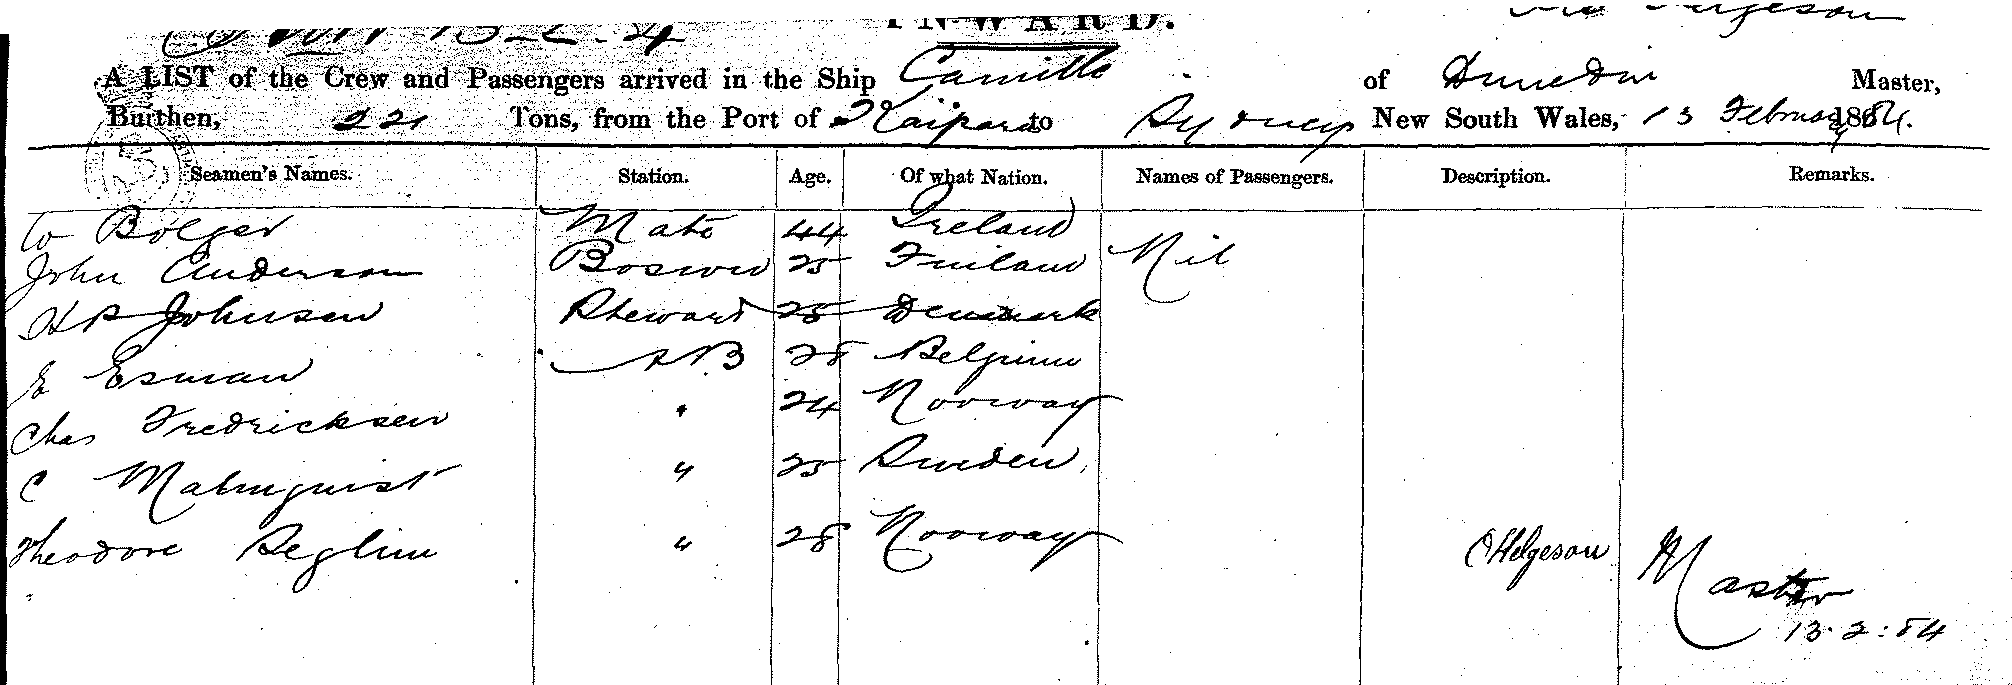 INWARD.
A LIST of the Crew and Passengers arrived in the Ship Camille of Dunedin Master,
Burthen, 221 Tons, from the Port of Kaipara to Sydney New South Wales, 13 February 1884.
Seamen's Names. Station. Age. Of what Nation. Names of Passengers. Description. Remarks.
Bolger Mate 44 Ireland Nil
John Anderson Boswn 25 Finland
Johnsen Steward 25 Denmark
E Esman AB 28 Belgium
Chas Fredricksen " 24 Norway
C Malmquist " 25 Sweden
Theodore Reglin " 28 Norway
C Helgeson Master
13.2:84